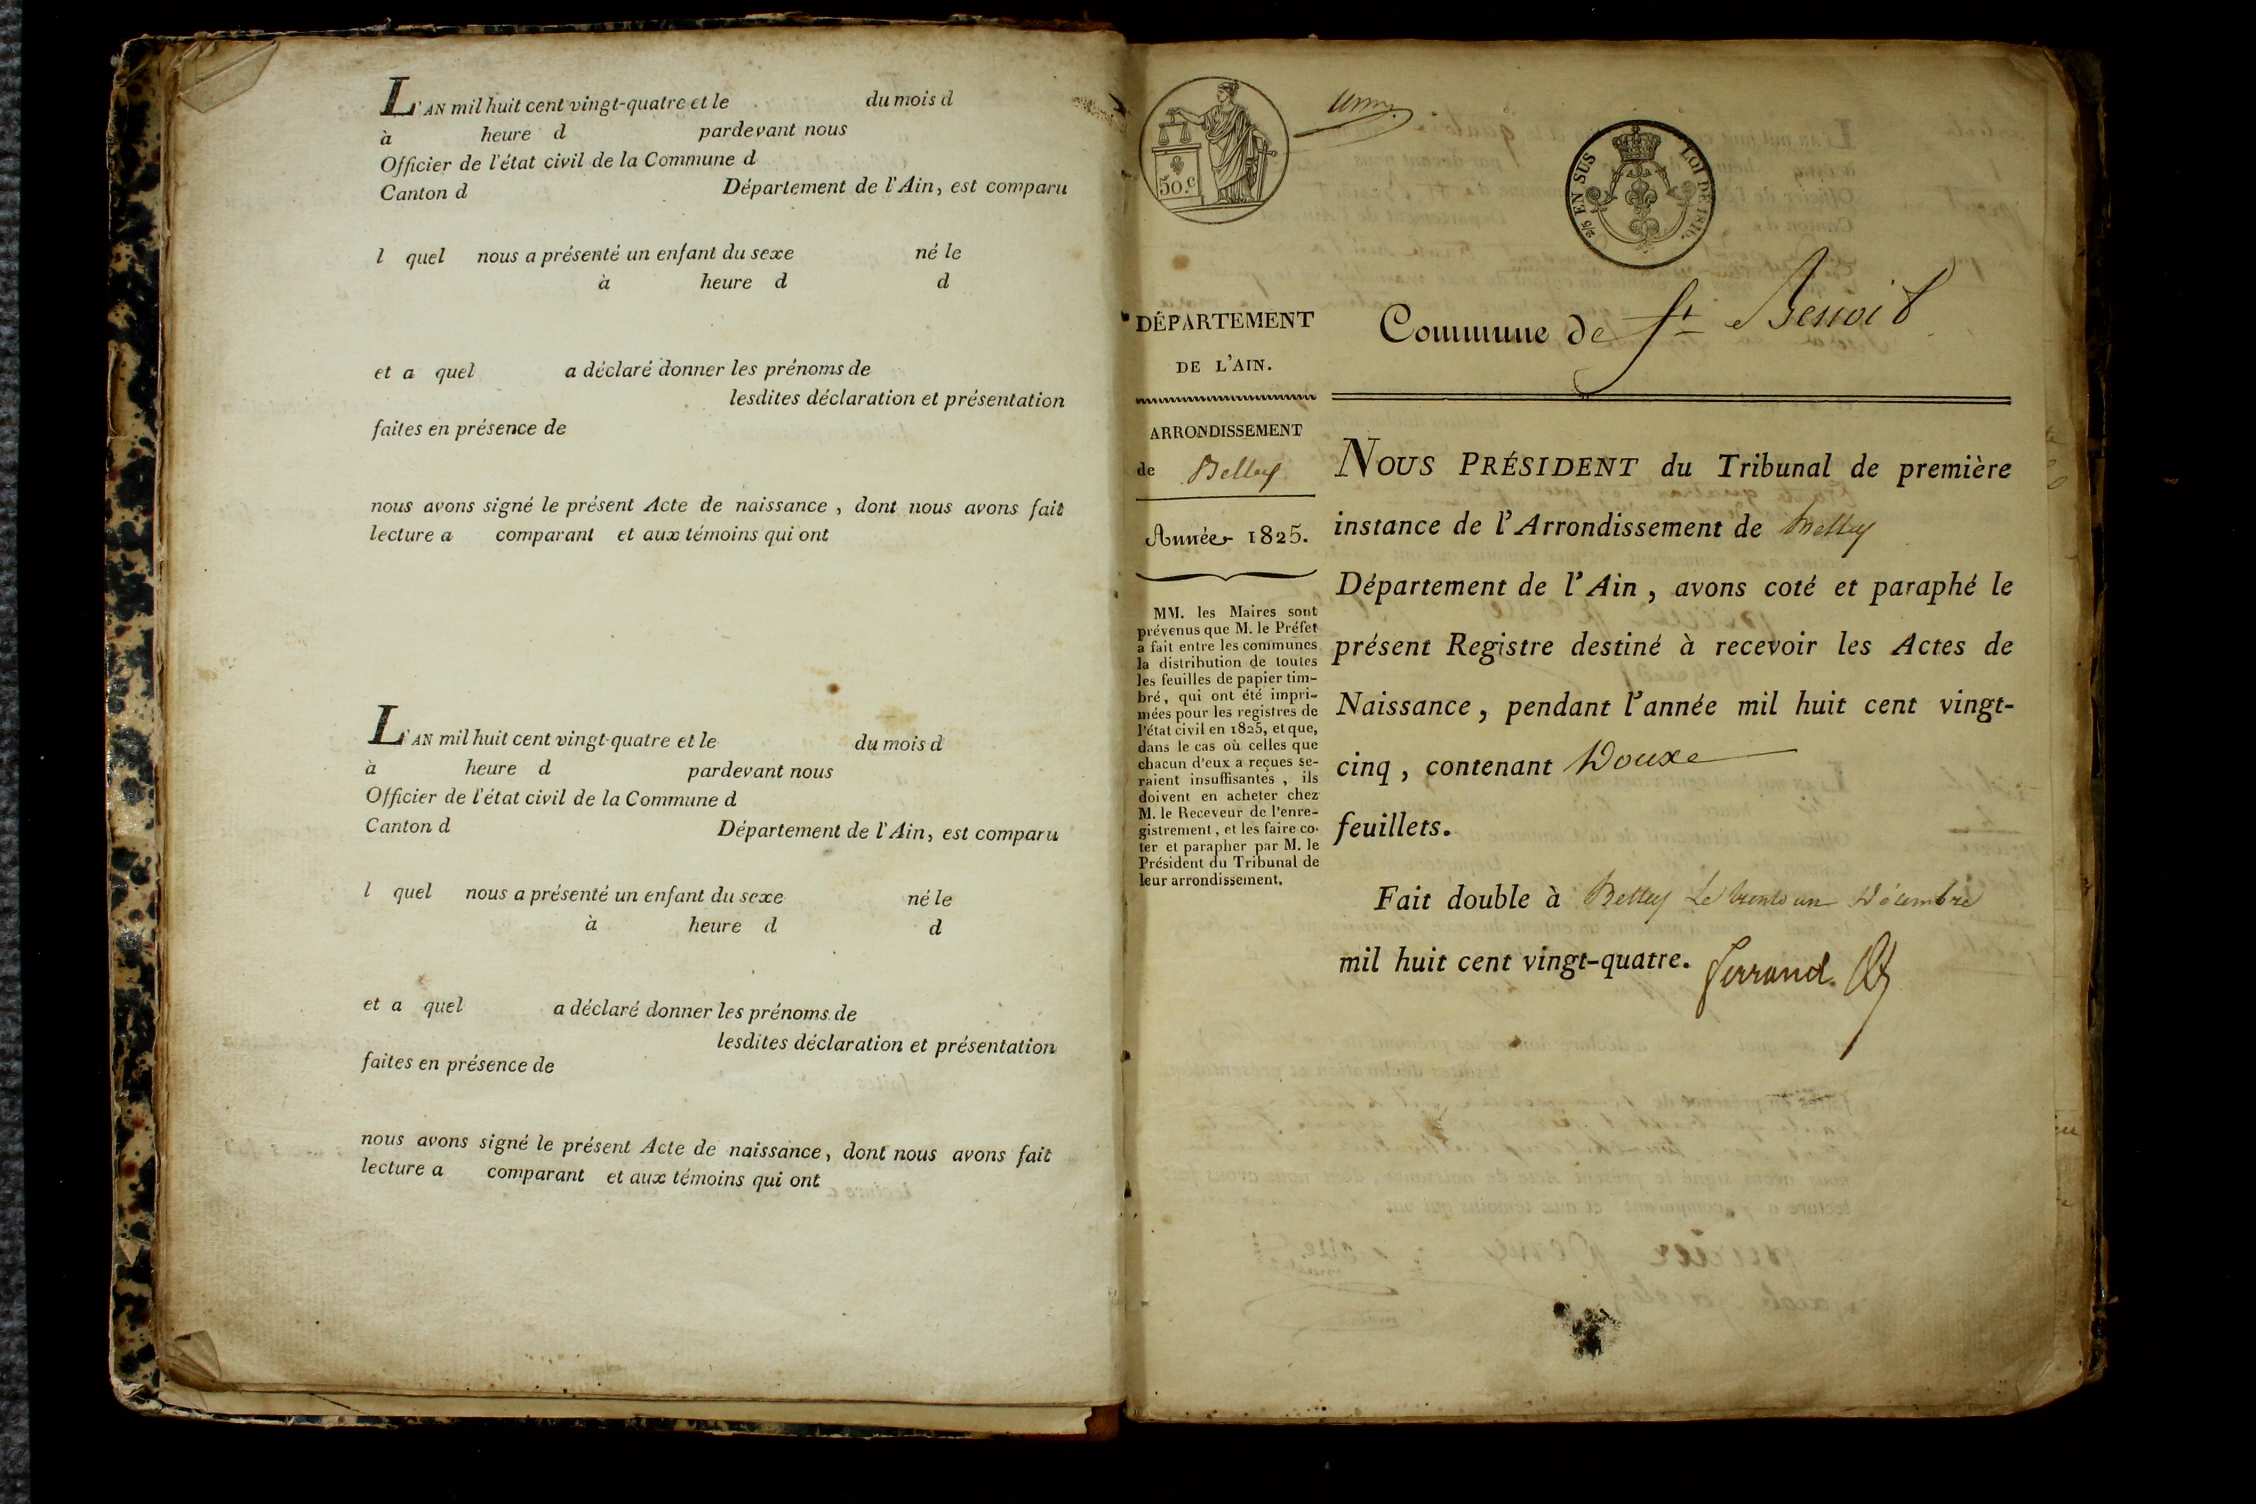 L'AN mil huit cent vingt-quatre et le du mois d
à heure d pardevant nous
Officier de l'état civil de la Commune d
Canton d Département de l'Ain, est comparu
l quel nous a présenté un enfant du sexe né le
à heure d d
et a quel a déclaré donner les prénoms de
lesdites déclaration et présentation
faites en présence de
nous avons signé le présent Acte de naissance, dont nous avons fait
lecture a comparant et aux témoins qui ont
L'AN mil huit cent vingt-quatre et le du mois d
à heure d pardevant nous
Officier de l'état civil de la Commune d
Canton d Département de l'Ain, est comparu
l quel nous a présenté un enfant du sexe né le
à heure d d
et a quel a déclaré donner les prénoms de
lesdites déclaration et présentation
faites en présence de
nous avons signé le présent Acte de naissance, dont nous avons fait
lecture a comparant et aux témoins qui ont
50.c
2/5 EN SUS LOI DE 1816.
DÉPARTEMENT
DE L'AIN.
ARRONDISSEMENT
de Belley
Année 1825.
MM. les Maires sont
prévenus que M. le Préfet
a fait entre les communes
la distribution de toutes
les feuilles de papier tim-
bré, qui ont été impri-
mées pour les registres de
l'état civil en 1825, et que,
dans le cas où celles que
chacun d'eux a reçues se-
raient insuffisantes, ils
doivent en acheter chez
M. le Receveur de l'enre-
gistrement, et les faire co-
ter et parapher par M. le
Président du Tribunal de
leur arrondissement.
Commune de St Benoit
NOUS PRÉSIDENT du Tribunal de première
instance de l'Arrondissement de Belley
Département de l'Ain, avons coté et paraphé le
présent Registre destiné à recevoir les Actes de
Naissance, pendant l'année mil huit cent vingt-
cinq, contenant Douze
feuillets.
Fait double à Belley Le trente un Décembre
mil huit cent vingt-quatre. Ferrand